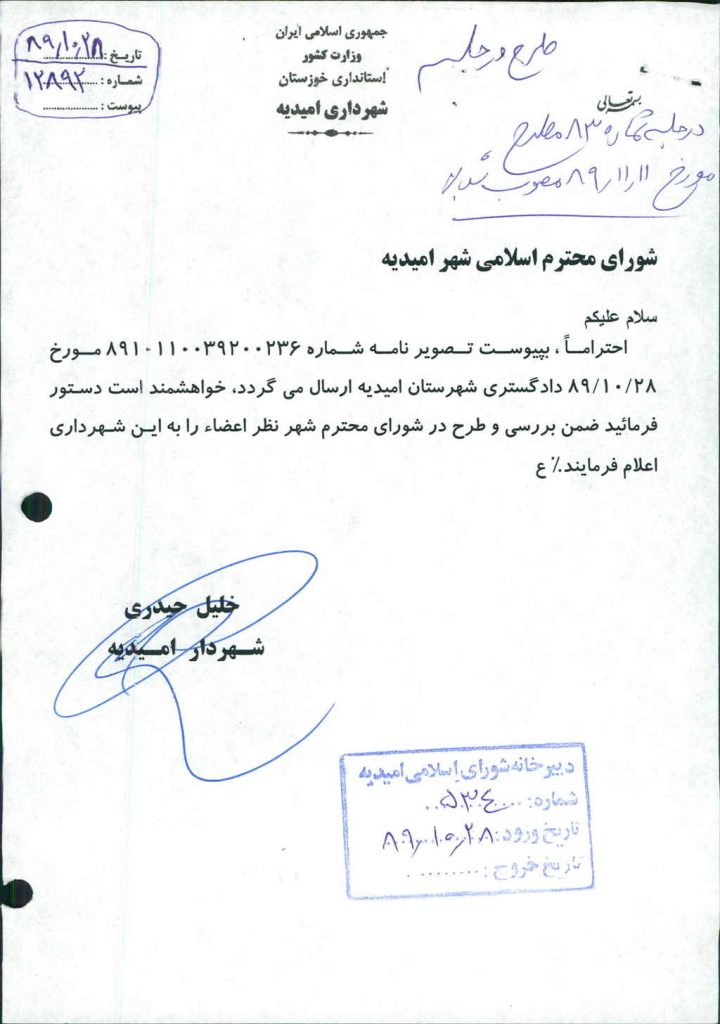 جمهوری اسلامی ایران
وزارت کشور
استانداری خوزستان
شهرداری امیدیه
تاریخ : ۸۹/۱۰/۲۸
شماره : ۱۲۸۹۲
پیوست :
طرح در جلسه
بسمه تعالی
در جلسه شماره ۸۳ مطرح
مورخ ۸۹/۱۱/۱۱ مصوب شد
شورای محترم اسلامی شهر امیدیه
سلام علیکم
احتراماً ، بپیوست تصویر نامه شماره ۸۹۱۰۱۱۰۰۳۹۲۰۰۲۳۶ مورخ
۸۹/۱۰/۲۸ دادگستری شهرستان امیدیه ارسال می گردد، خواهشمند است دستور
فرمائید ضمن بررسی و طرح در شورای محترم شهر نظر اعضاء را به این شهرداری
اعلام فرمایند.٪ ع
خلیل حیدری
شهردار امیدیه
دبیرخانه شورای اسلامی امیدیه
شماره: ۵۳۴۰
تاریخ ورود: ۸۹/۱۰/۲۸
تاریخ خروج :